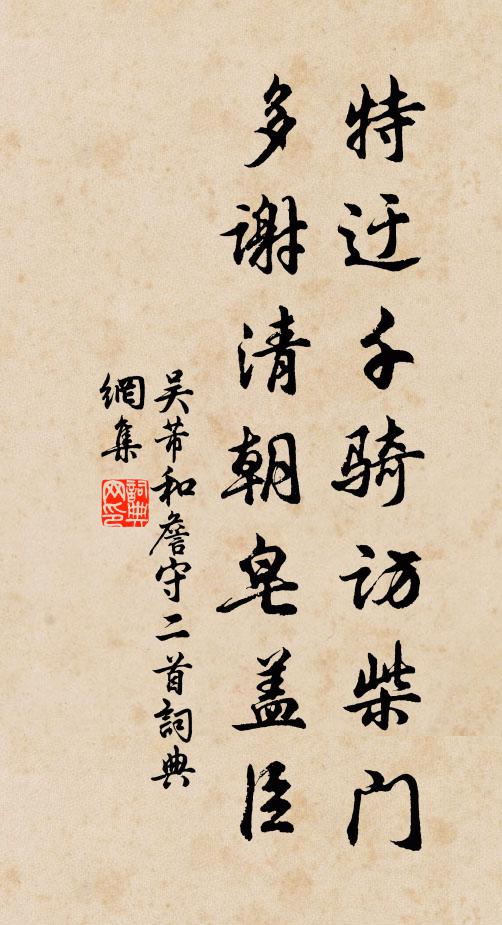 特迂千骑访柴门
多谢清朝皂盖臣
吴芾和詹守二首詞典
網集
詞典
网印